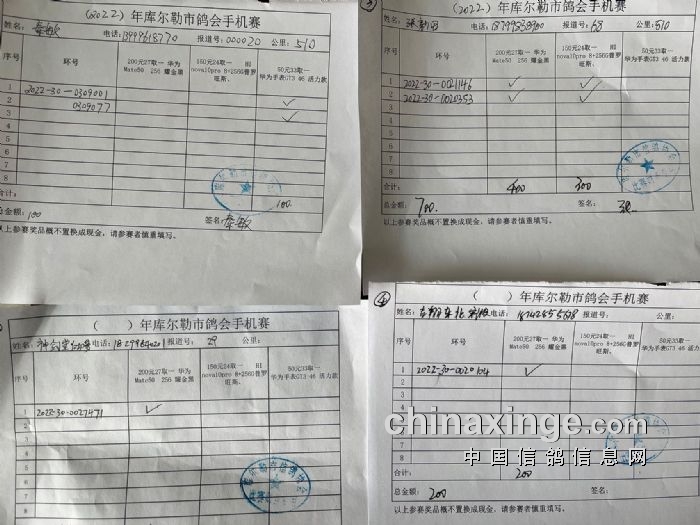 （2022）年库尔勒市鸽会手机赛
姓名：秦敏 电话： 报道号：000020 公里：510
序号 环号 200元27取一 华为Mate50 256 耀金黑 150元24取一 HI nova10pro 8+256G普罗旺斯、 50元33取一 华为手表GT3 46 活力款
1 2022-30-0309001
2 0309077 ✓
3 ✓
4
5
6
7
8
合计： 100.
总金额：100 签名：秦敏
以上参赛奖品概不置换成现金，请参赛者慎重填写。
③
（2022）年库尔勒市鸽会手机赛
姓名： 电话：18799838900 报道号：68 公里：510
序号 环号 200元27取一 华为Mate50 256 耀金黑 150元24取一 HI nova10pro 8+256G普罗旺斯、 50元33取一 华为手表GT3 46 活力款
1 2022-30-0021146 ✓ ✓
2 2022-30-0020353 ✓ ✓
3
4
5
6
7
8
合计： 400 300
总金额：700. 签名：
以上参赛奖品概不置换成现金，请参赛者慎重填写。
（ ）年库尔勒市鸽会手机赛
姓名： 电话： 报道号：29 公里：
序号 环号 200元27取一 华为Mate50 256 耀金黑 150元24取一 HI nova10pro 8+256G普罗旺斯、 50元33取一 华为手表GT3 46 活力款
1 2022-30-0027471 ✓
2
3
4
5
6
7
8
④
（ ）年库尔勒市鸽会手机赛
姓名： 电话： 报道号： 公里：
序号 环号 200元27取一 华为Mate50 256 耀金黑 150元24取一 HI nova10pro 8+256G普罗旺斯、 50元33取一 华为手表GT3 46 活力款
1 2022-30-0020104 ✓
2
7
8
合计： 200
总金额：200 签名：
以上参赛奖品概不置换成现金，请参赛者慎重填写。
chinaxinge.com
中国信鸽信息网